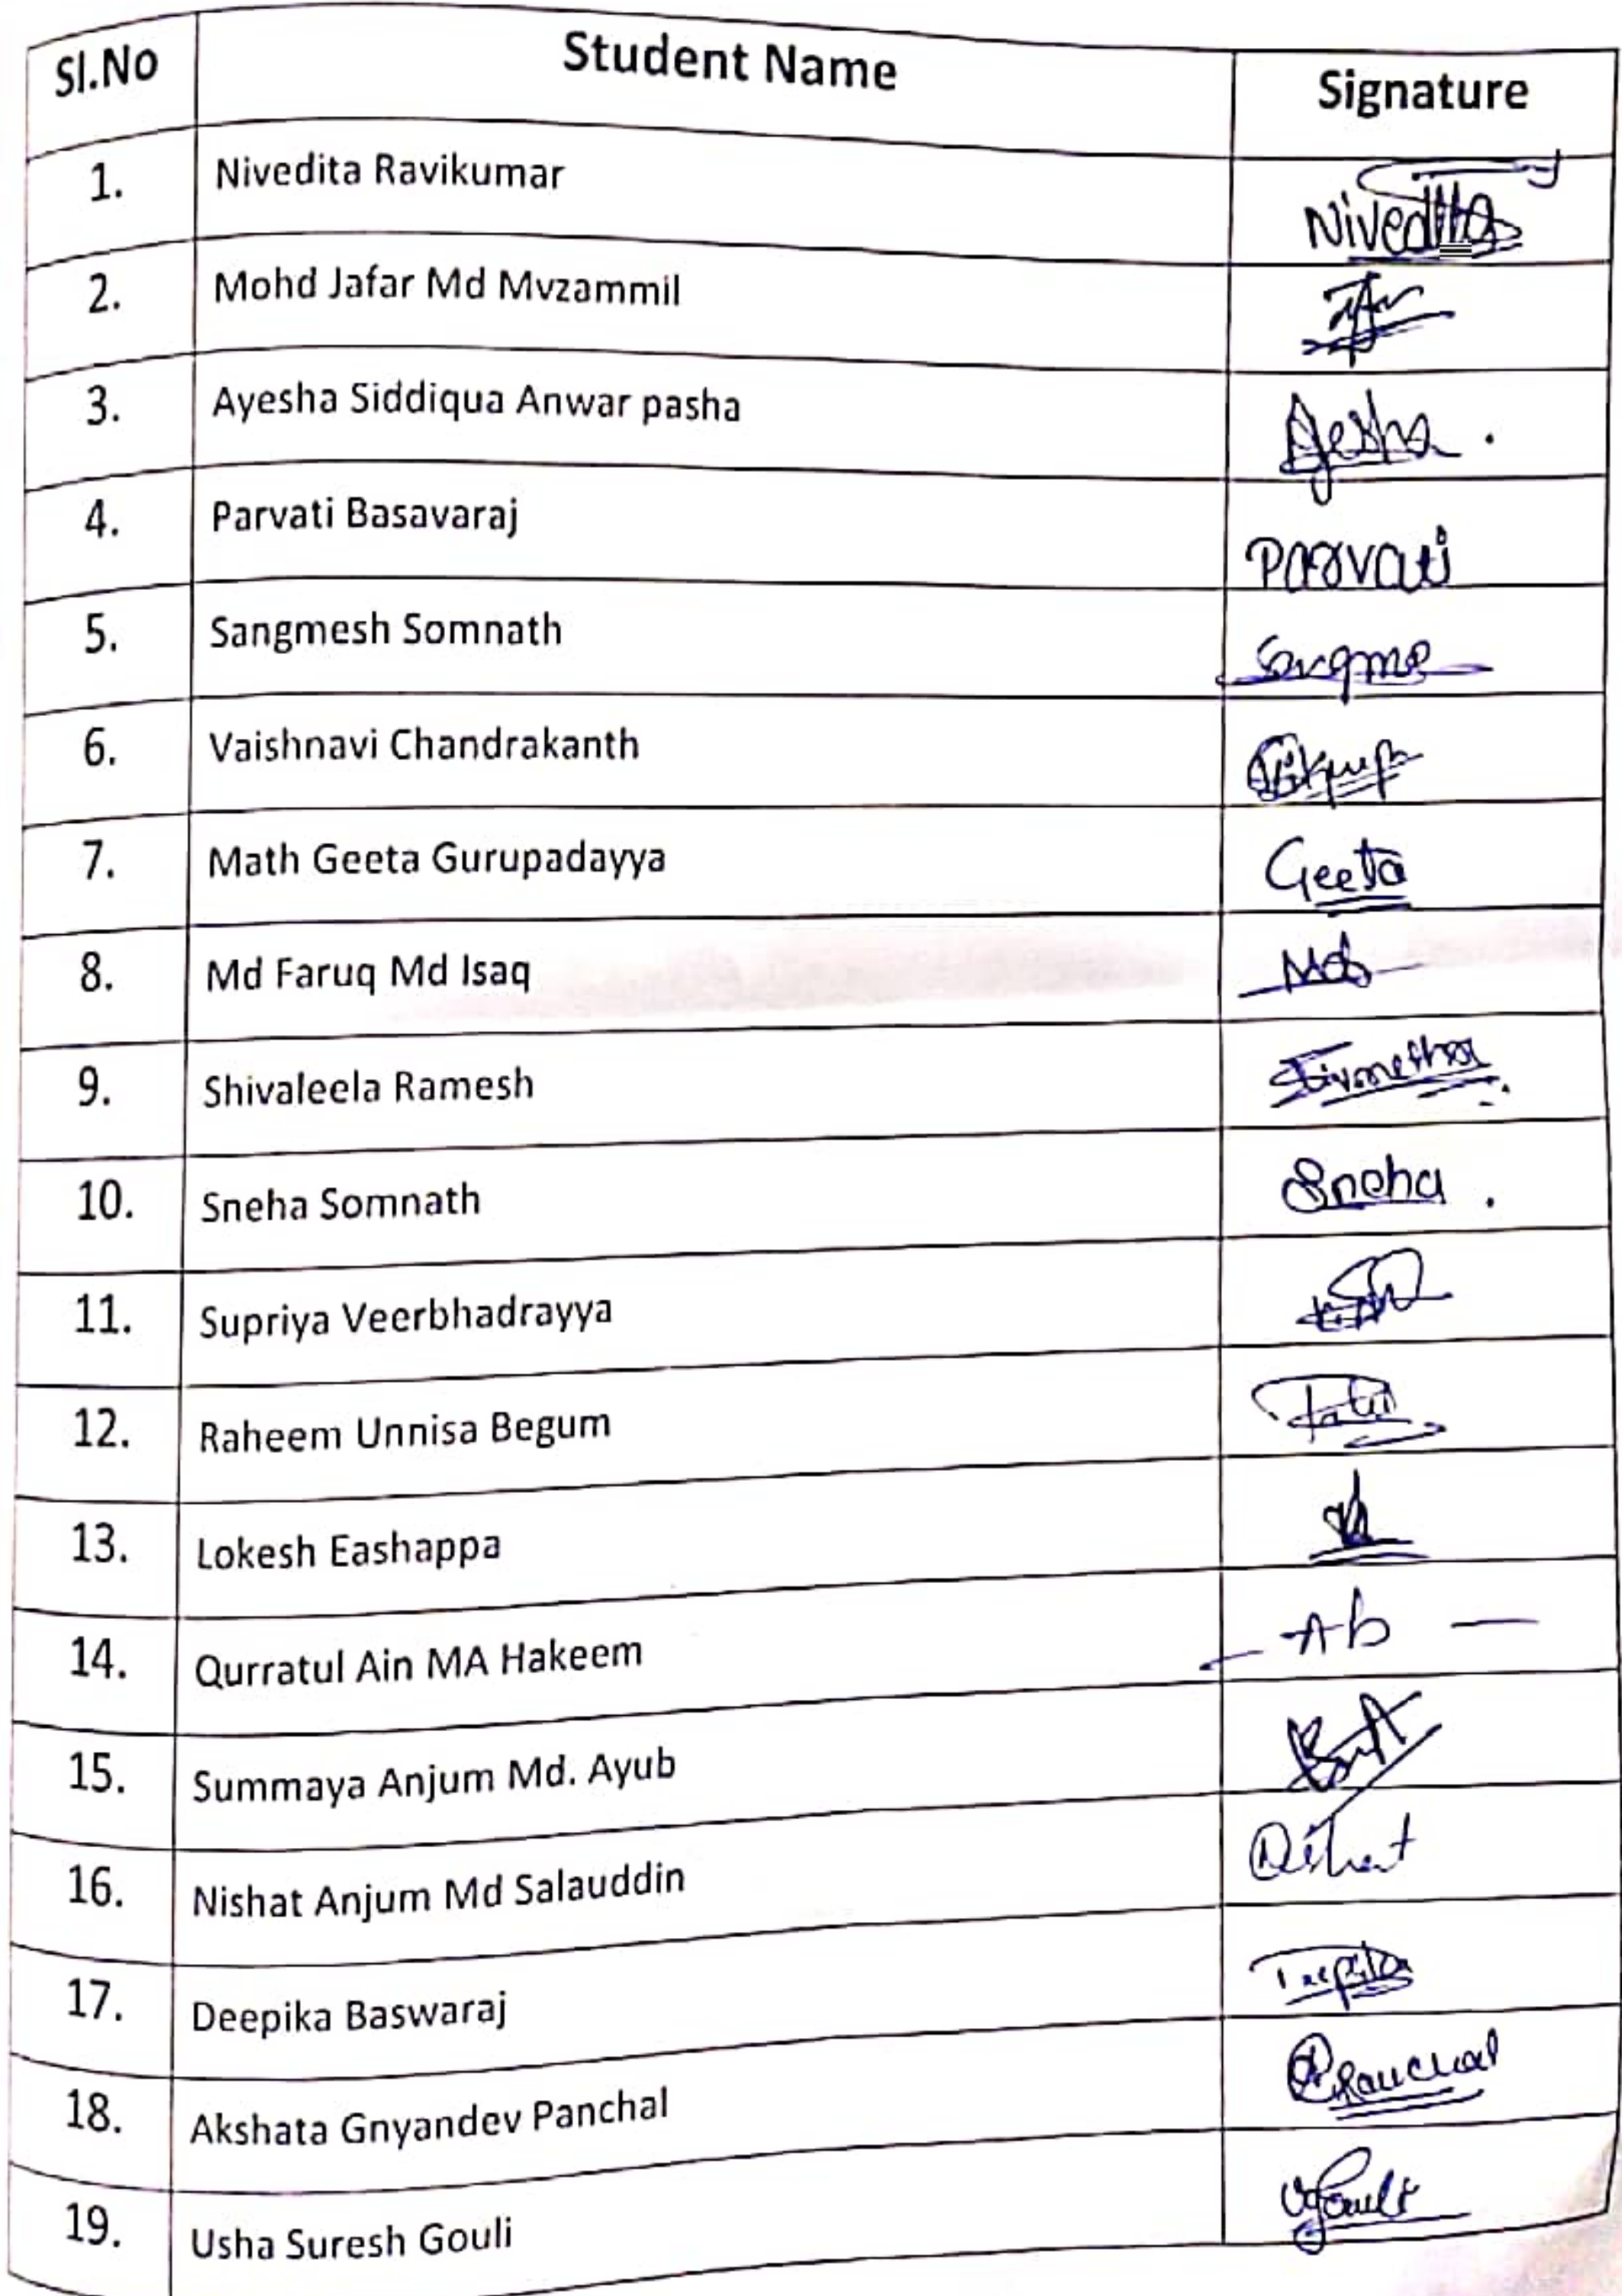 Sl.No Student Name Signature
1. Nivedita Ravikumar Nivedita
2. Mohd Jafar Md Mvzammil
3. Ayesha Siddiqua Anwar pasha Ayesha .
4. Parvati Basavaraj Parvati
5. Sangmesh Somnath Sangme
6. Vaishnavi Chandrakanth
7. Math Geeta Gurupadayya Geeta
8. Md Faruq Md Isaq
9. Shivaleela Ramesh
10. Sneha Somnath Sneha .
11. Supriya Veerbhadrayya
12. Raheem Unnisa Begum
13. Lokesh Eashappa
14. Qurratul Ain MA Hakeem - Ab -
15. Summaya Anjum Md. Ayub
16. Nishat Anjum Md Salauddin
17. Deepika Baswaraj
18. Akshata Gnyandev Panchal
19. Usha Suresh Gouli